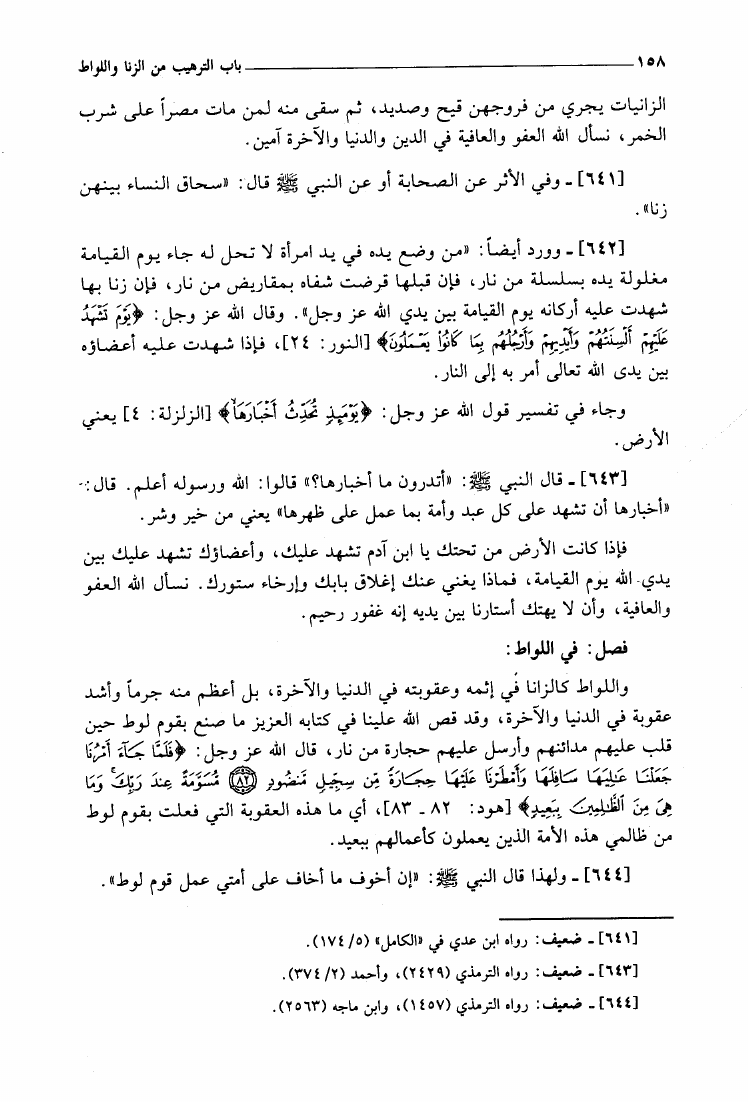 ١٥٨ ـــــــــ باب الترهيب من الزنا واللواط
الزانيات يجري من فروجهن قيح وصديد، ثم سقى منه لمن مات مصراً على شرب
الخمر، نسأل الله العفو والعافية في الدين والدنيا والآخرة آمين.
[٦٤١] ـ وفي الأثر عن الصحابة أو عن النبي ﷺ قال: «سحاق النساء بينهن
زنا».
[٦٤٢] ـ وورد أيضاً: «من وضع يده في يد امرأة لا تحل له جاء يوم القيامة
مغلولة يده بسلسلة من نار، فإن قبلها قرضت شفاه بمقاريض من نار، فإن زنا بها
شهدت عليه أركانه يوم القيامة بين يدي الله عز وجل». وقال الله عز وجل: ﴿يَوْمَ تَشْهَدُ
عَلَيْهِمْ أَلْسِنَتُهُمْ وَأَيْدِيهِمْ وَأَرْجُلُهُم بِمَا كَانُوا يَعْمَلُونَ﴾ [النور: ٢٤]، فإذا شهدت عليه أعضاؤه
بين يدى الله تعالى أمر به إلى النار.
وجاء في تفسير قول الله عز وجل: ﴿يَوْمَئِذٍ تُحَدِّثُ أَخْبَارَهَا﴾ [الزلزلة: ٤] يعني
الأرض.
[٦٤٣] ـ قال النبي ﷺ: «أتدرون ما أخبارها؟» قالوا: الله ورسوله أعلم. قال:
«أخبارها أن تشهد على كل عبد وأمة بما عمل على ظهرها» يعني من خير وشر.
فإذا كانت الأرض من تحتك يا ابن آدم تشهد عليك، وأعضاؤك تشهد عليك بين
يدي الله يوم القيامة، فماذا يغني عنك إغلاق بابك وإرخاء ستورك. نسأل الله العفو
والعافية، وأن لا يهتك أستارنا بين يديه إنه غفور رحيم.
فصل: في اللواط:
واللواط كالزانا في إثمه وعقوبته في الدنيا والآخرة، بل أعظم منه جرماً وأشد
عقوبة في الدنيا والآخرة، وقد قص الله علينا في كتابه العزيز ما صنع بقوم لوط حين
قلب عليهم مدائنهم وأرسل عليهم حجارة من نار، قال الله عز وجل: ﴿فَلَمَّا جَاءَ أَمْرُنَا
جَعَلْنَا عَالِيَهَا سَافِلَهَا وَأَمْطَرْنَا عَلَيْهَا حِجَارَةً مِّن سِجِّيلٍ مَّنضُودٍ ﴿٨٢﴾ مُّسَوَّمَةً عِندَ رَبِّكَ وَمَا
هِيَ مِنَ الظَّالِمِينَ بِبَعِيدٍ﴾ [هود: ٨٢ ـ ٨٣]، أي ما هذه العقوبة التي فعلت بقوم لوط
من ظالمي هذه الأمة الذين يعملون كأعمالهم ببعيد.
[٦٤٤] ـ ولهذا قال النبي ﷺ: «إن أخوف ما أخاف على أمتي عمل قوم لوط».
[٦٤١] ـ ضعيف: رواه ابن عدي في «الكامل» (٥/ ١٧٤).
[٦٤٣] ـ ضعيف: رواه الترمذي (٢٤٢٩)، وأحمد (٢/ ٣٧٤).
[٦٤٤] ـ ضعيف: رواه الترمذي (١٤٥٧)، وابن ماجه (٢٥٦٣).